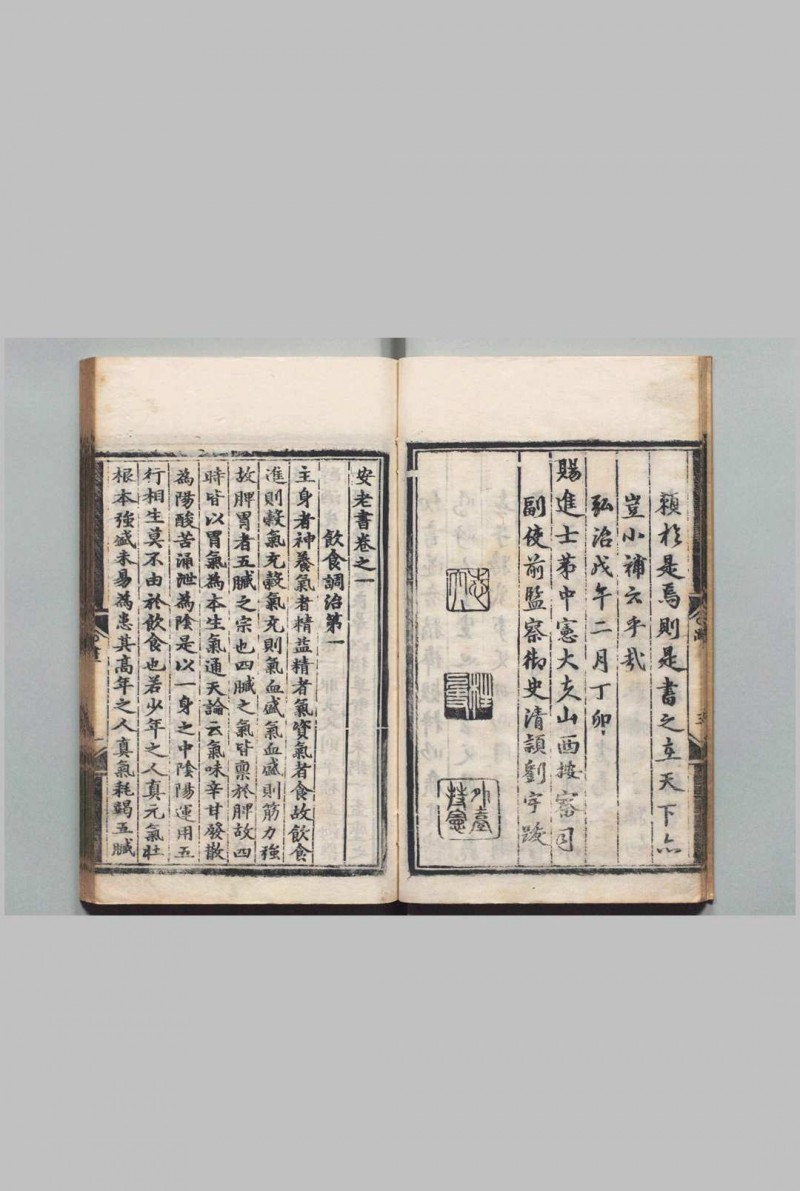 賴於是焉則是書之在天下亦
豈小補云乎哉
弘治戊午二月丁卯
賜進士第中憲大夫山西按察司
副使前監察御史清潁劉宇跋
外臺
持憲
安老書卷之一
飲食調治第一
主身者神養氣者精益精者氣資氣者食故飲食
進則穀氣充穀氣充則氣血盛氣血盛則筋力強
故脾胃者五臟之宗也四臟之氣皆禀於脾故四
時皆以胃氣為本生氣通天論云氣味辛甘發散
為陽酸苦涌泄為陰是以一身之中陰陽運用五
行相生莫不由於飲食也若少年之人真元氣壯
根本強盛未易為患其高年之人真氣耗竭五臟